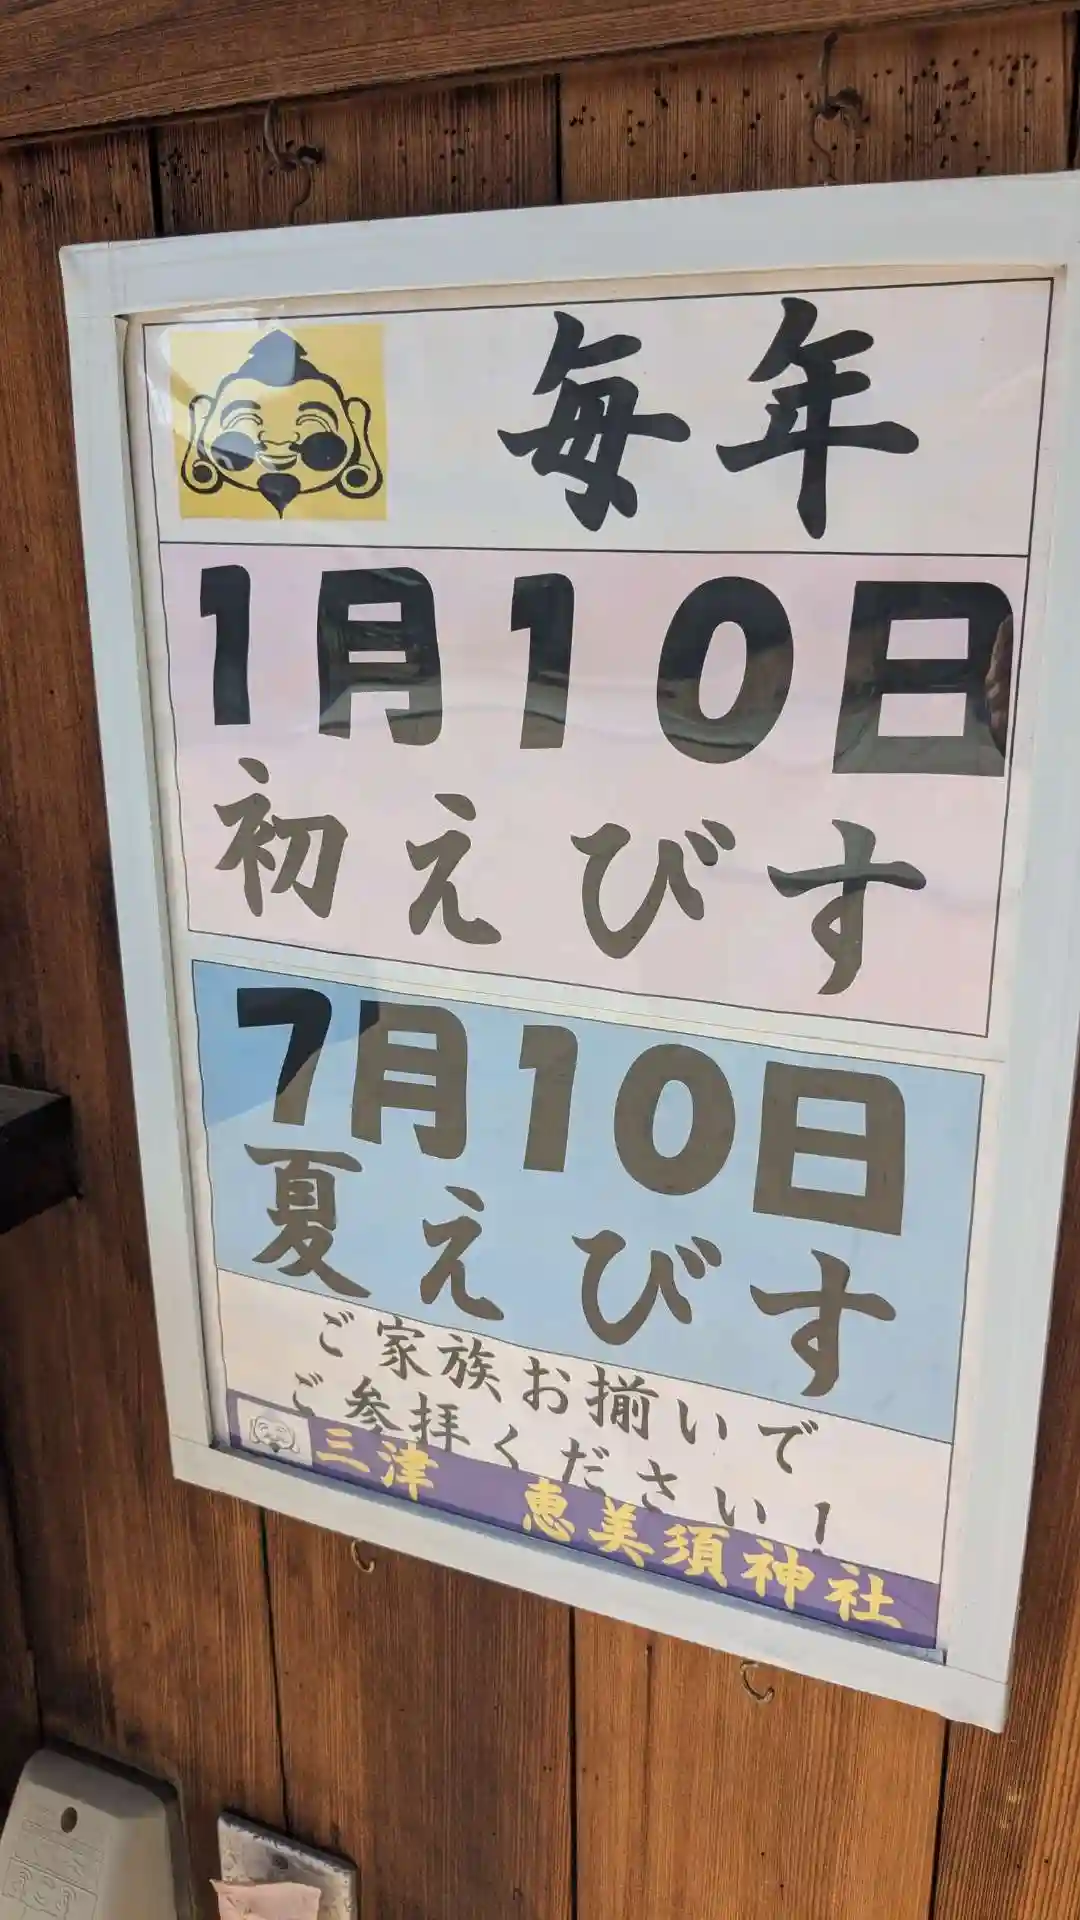 毎年
1月10日
初えびす
7月10日
夏えびす
ご家族お揃いで
ご参拝ください！
三津 恵美須神社